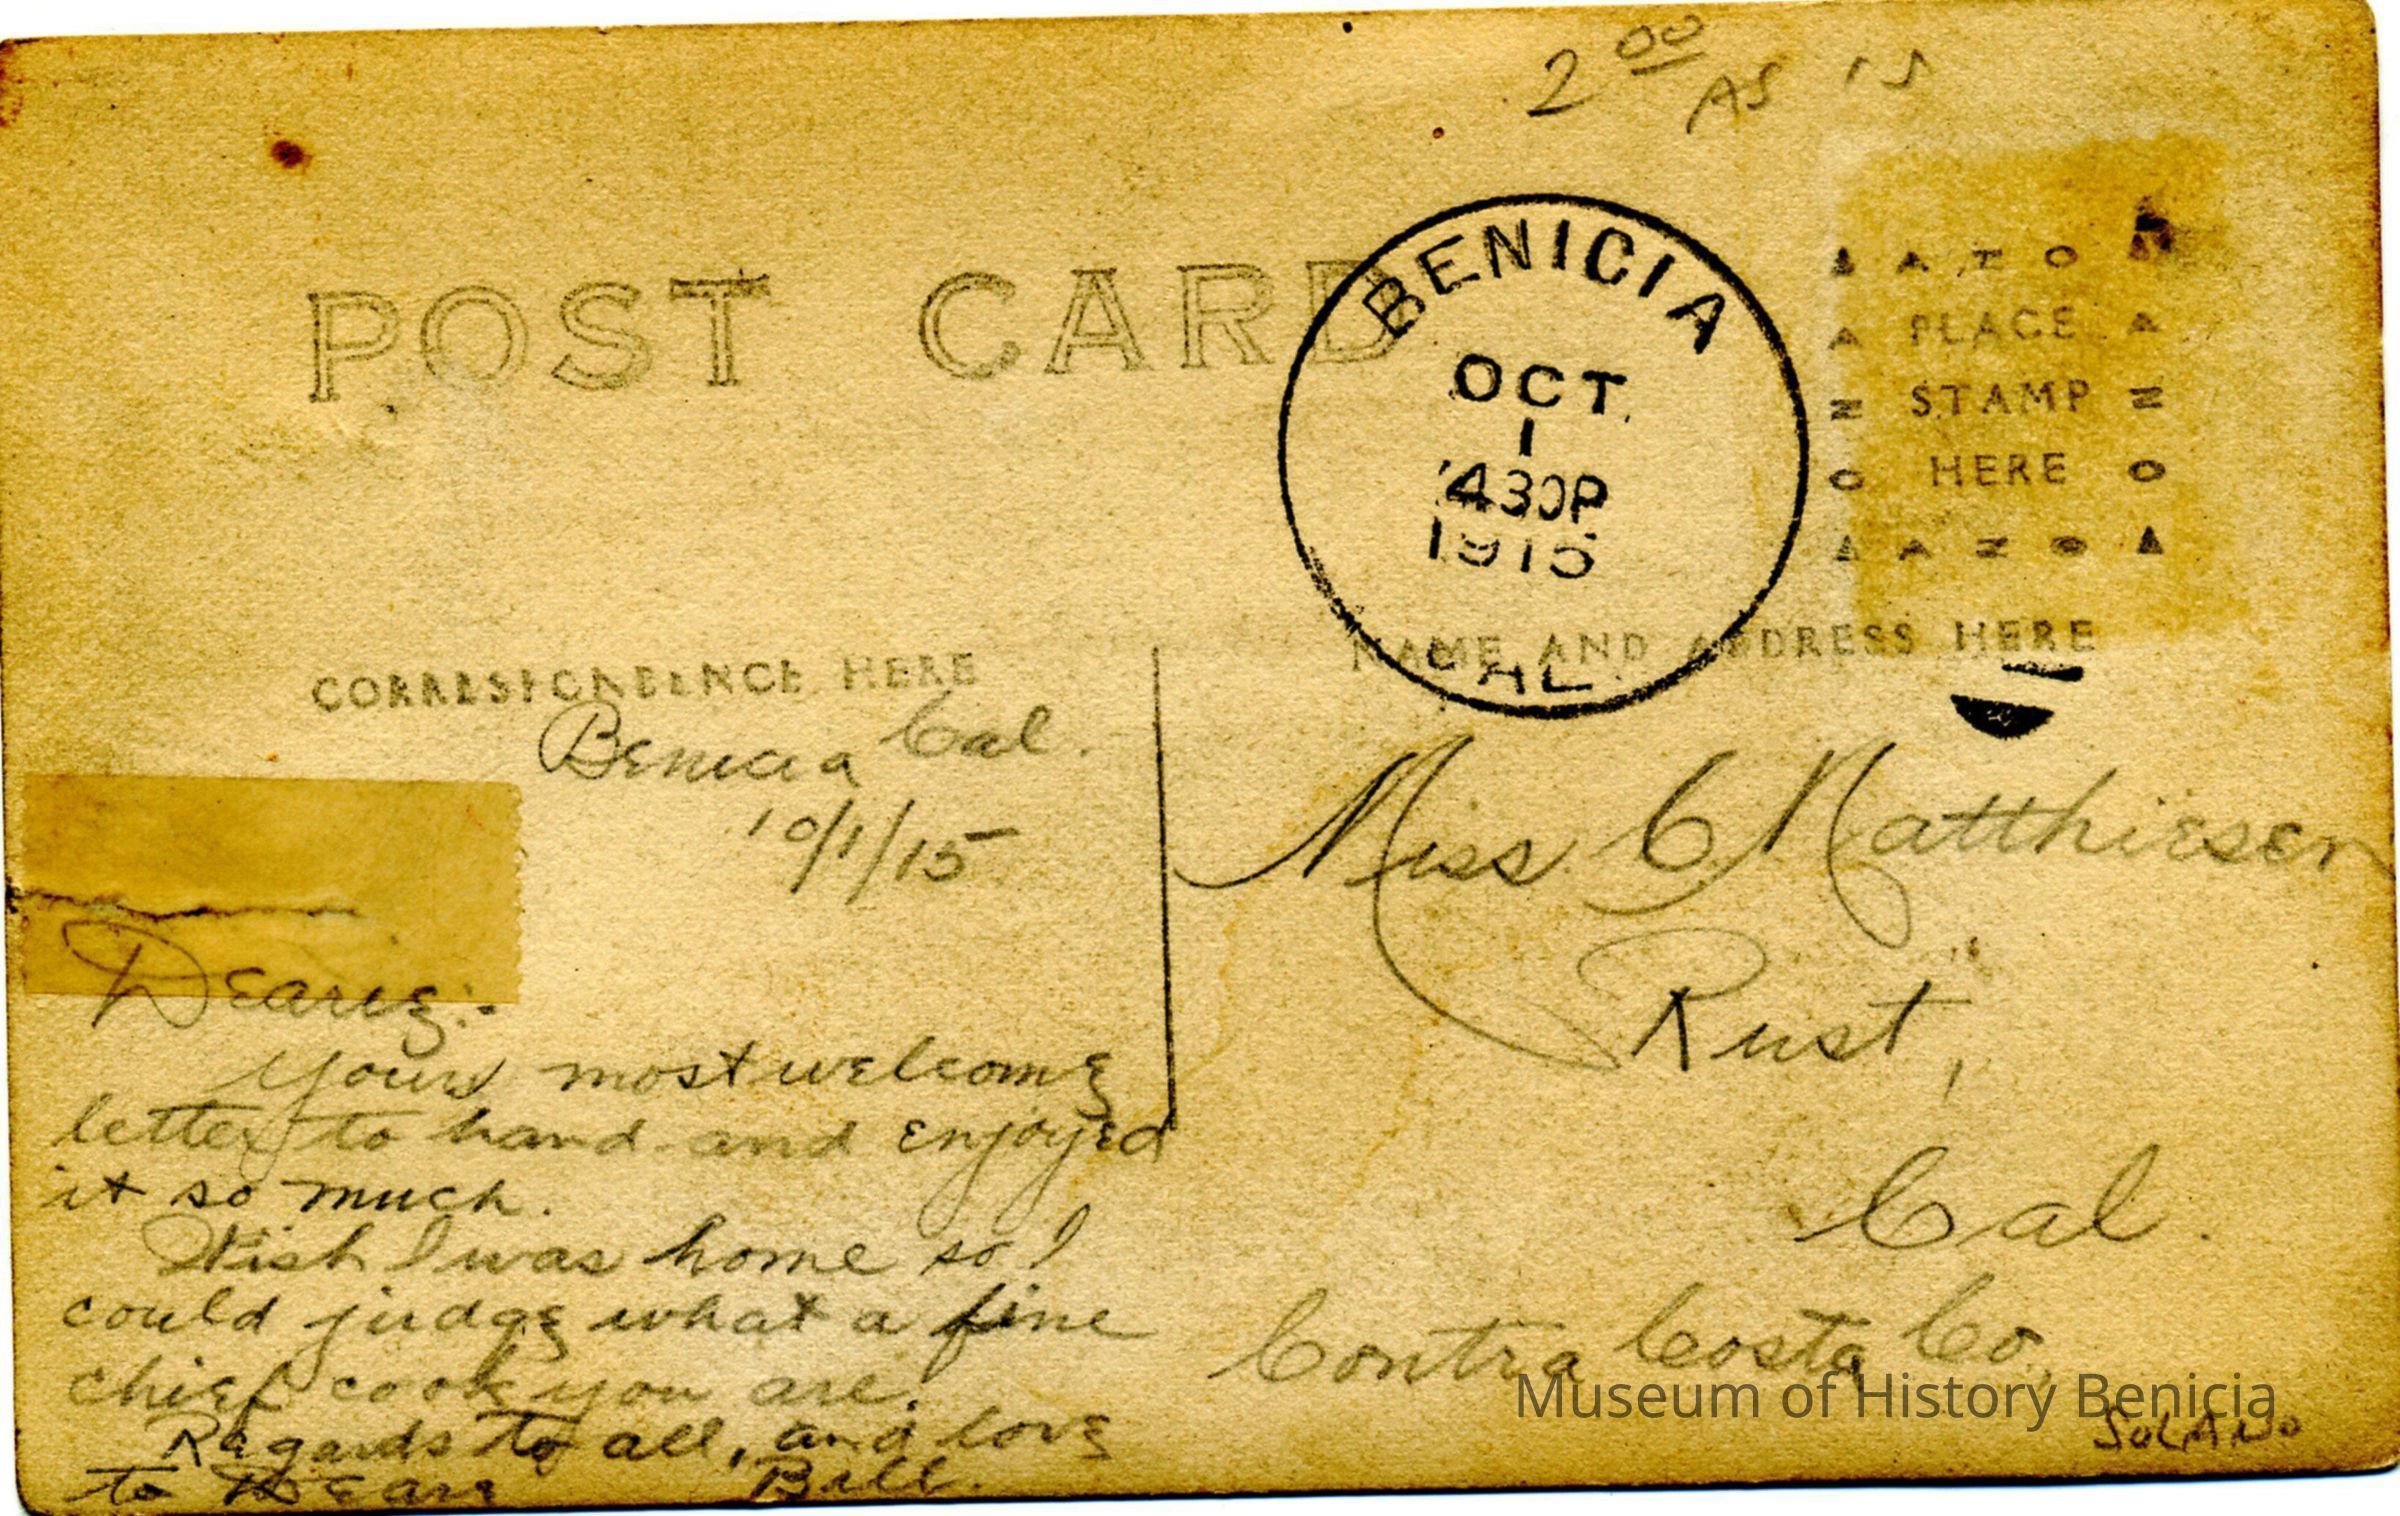 2 00 AS IS
POST CARD
BENICIA
OCT
1
430P
1915
CAL.
PLACE
STAMP
HERE
CORRESPONDENCE HERE
NAME AND ADDRESS HERE
Benicia Cal.
10/1/15
Dearie:-
Your most welcome
letter to hand and enjoyed
it so much.
Wish I was home so I
could judge what a fine
chief cook you are.
Regards to all, and love
to Bill.
Miss C Matthiesen
Rust,
Cal.
Contra Costa Co.,
Museum of History Benicia
SOLANO